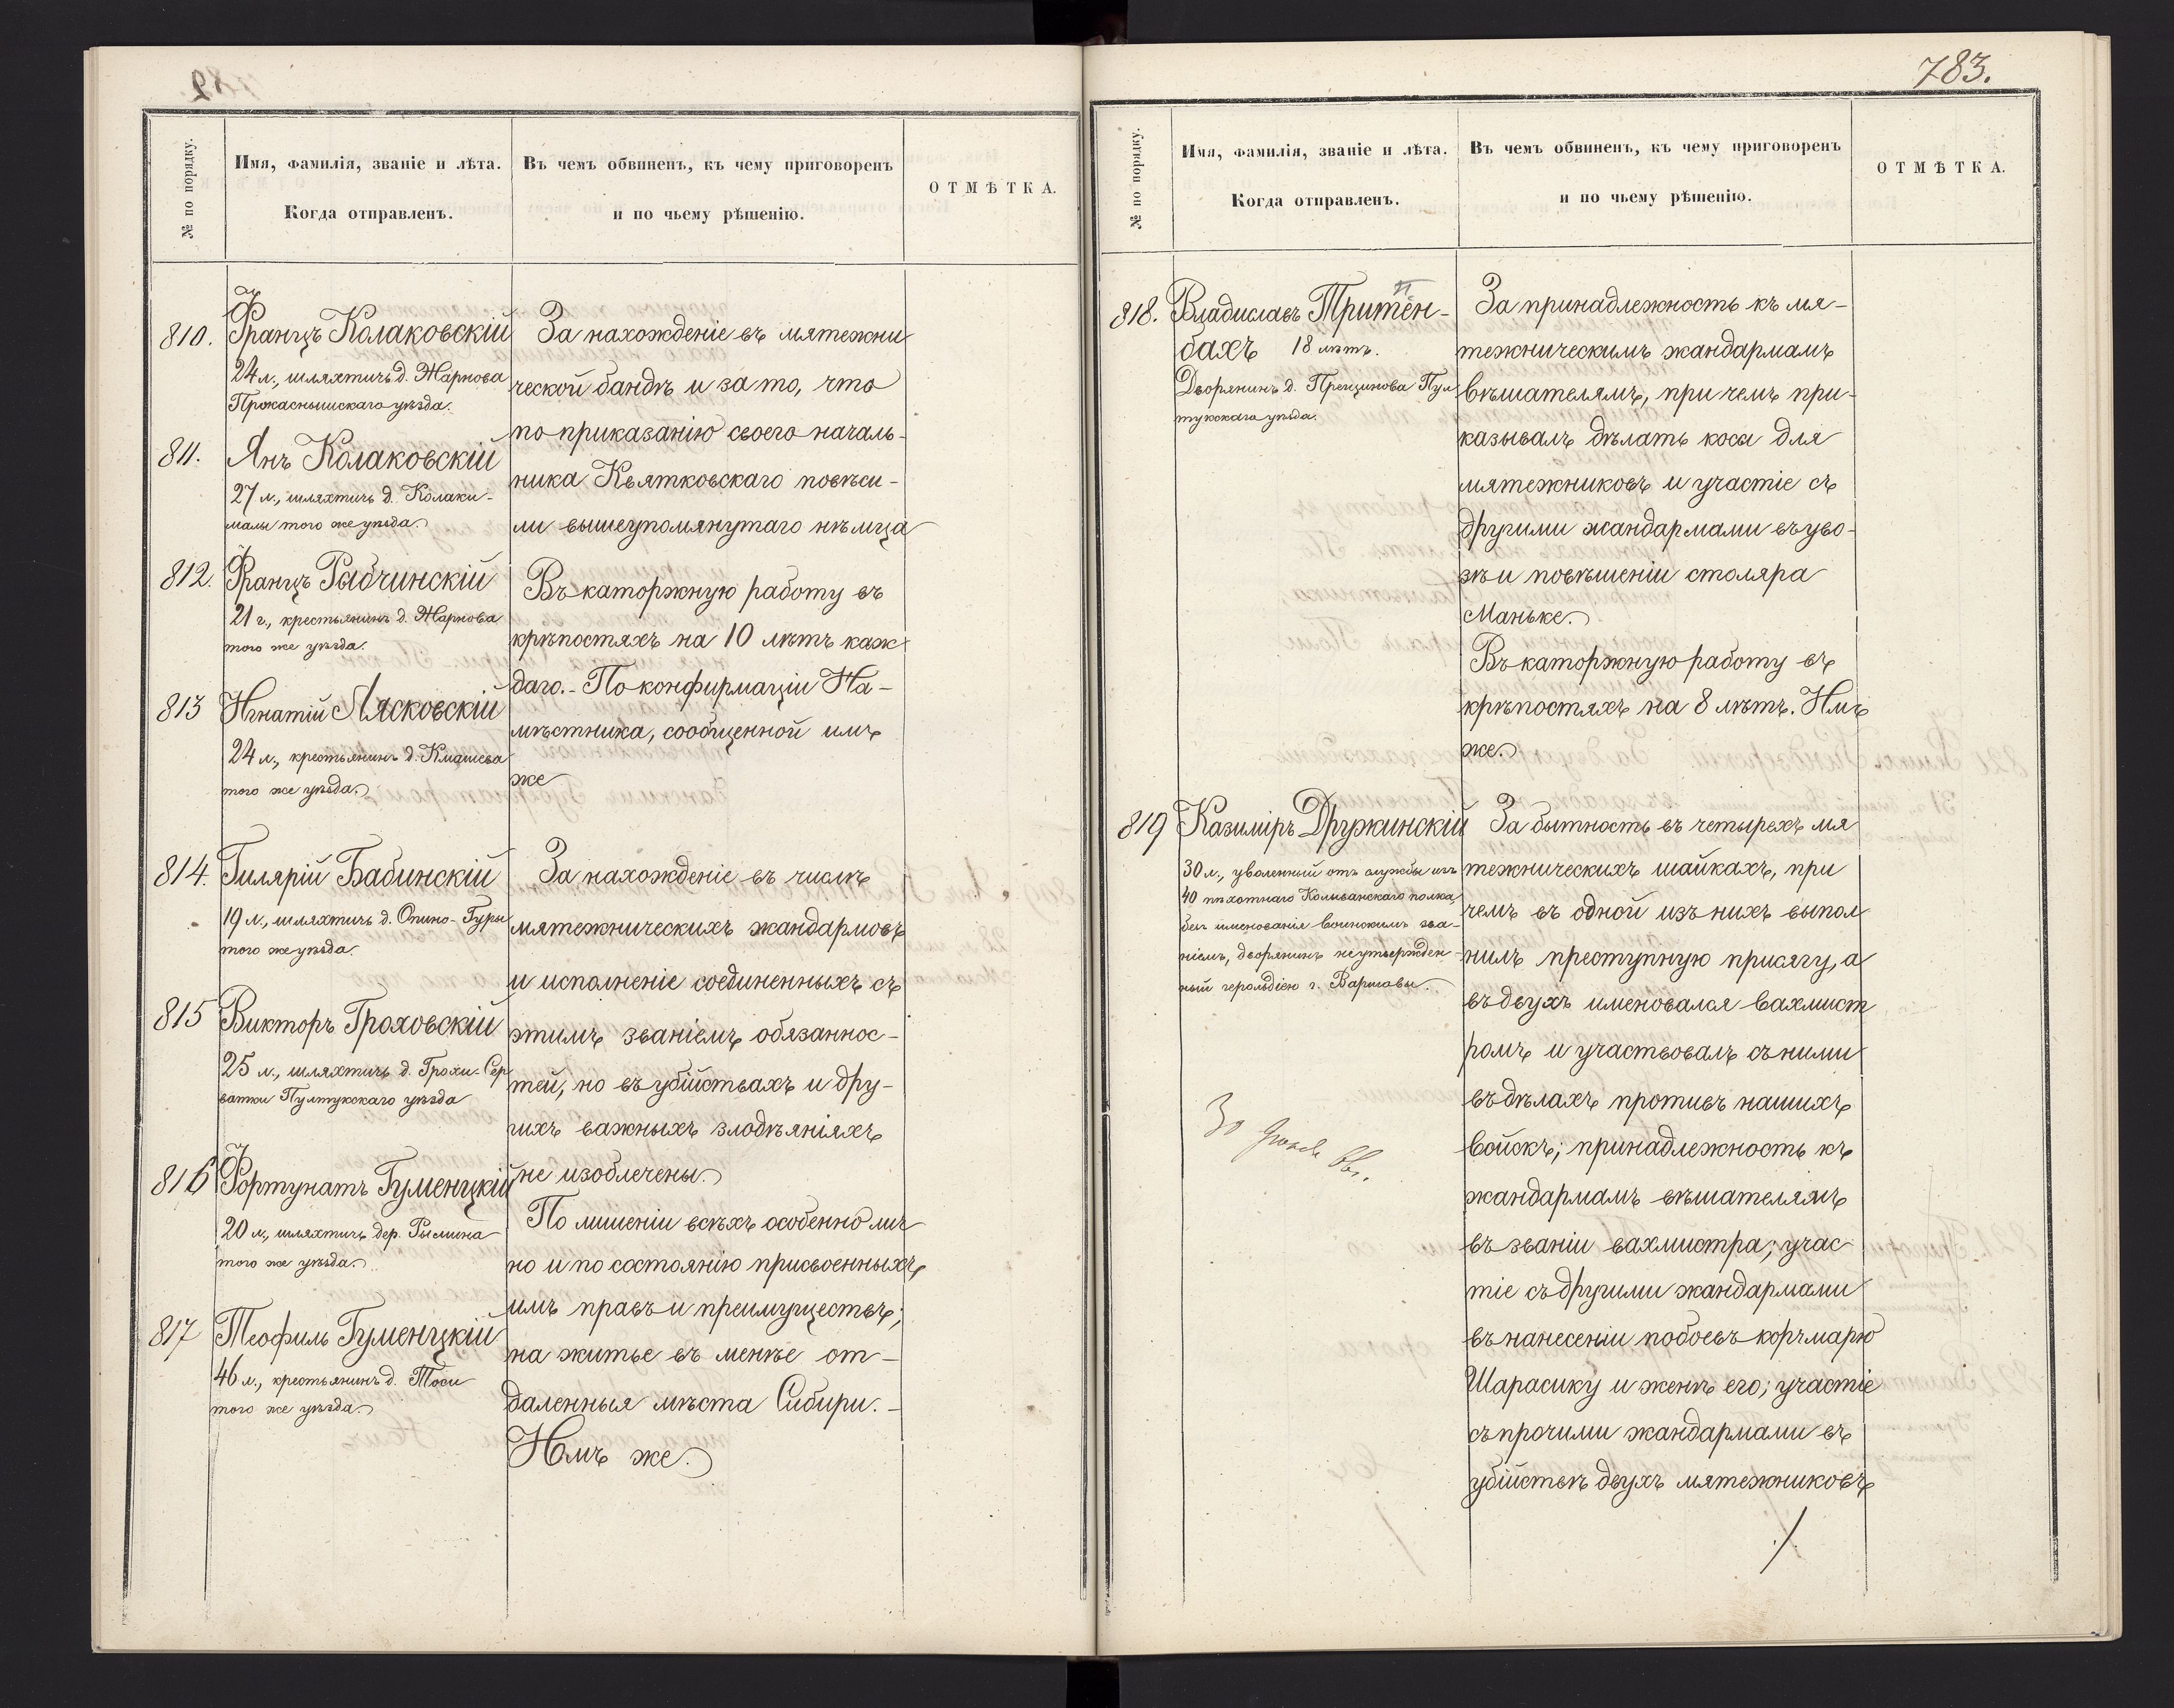 № по порядку.
Имя, фамилія, званіе и лѣта.
Когда отправленъ.
Въ чемъ обвиненъ, къ чему приговоренъ
и по чьему рѣшенію.
ОТМѢТКА.
810. Францъ Колаковскій
24 л., шляхтичъ д. Жарнова
Прасныскаго уѣзда.
811. Янъ Колаковскій
27 л., шляхтичъ д. Колаки-
малы того же уѣзда.
812. Францъ Рыбчинскій
21 г., крестьянинъ д. Жарнова
того же уѣзда.
813 Игнатій Лясковскій
24 л., крестьянинъ д. Кмашева
того же уѣзда.
За нахожденіе въ мятежни
ческой бандѣ и за то, что
по приказанію своего началь-
ника Квятковскаго повѣси-
ли вышеупомянутаго нѣмца
Въ каторжную работу въ
крѣпостяхъ на 10 лѣтъ каж-
даго.- По конфирмаціи На-
мѣстника, сообщенной имъ
же
814. Гилярій Бабинскій
19 л., шляхтичъ д. Опино-Гуры
того же уѣзда.
815 Викторъ Гроховскій
25 л., шляхтичъ д. Грохи-Сер
ватки Пултукскаго уѣзда
816 Фортунатъ Гуменцкій
20 л., шляхтичъ дер. Рысмина
того же уѣзда.
817 Теофиль Гуменцкій
46 л., крестьянинъ д. Тоси
того же уѣзда.
За нахожденіе въ числѣ
мятежническихъ жандармовъ
и исполненіе соединенныхъ съ
этимъ званіемъ обязаннос-
тей, но въ убійствахъ и дру-
гихъ важныхъ злодѣяніяхъ
не изобличены.
По лишеніи всѣхъ особенно лич
но и по состоянію присвоенныхъ
имъ правъ и преимуществъ;
на житье въ менѣе от-
даленныя мѣста Сибири.-
Имъ же.
783.
№ по порядку.
Имя, фамилія, званіе и лѣта.
Когда отправленъ.
Въ чемъ обвиненъ, къ чему приговоренъ
и по чьему рѣшенію.
ОТМѢТКА.
818. Владиславъ Тритен-
бахъ 18 лѣтъ.
Дворянинъ д. Прецинова Пул
тукскаго уѣзда.
За принадлежность къ мя-
тежническимъ жандармамъ
вѣшателямъ, при чемъ при-
казывалъ дѣлать косы для
мятежниковъ и участіе съ
другими жандармами въ уво-
зѣ и повѣшеніи столяра
Маньке.
Въ каторжную работу въ
крѣпостяхъ на 8 лѣтъ. Имъ
же.
819 Казиміръ Дружинскій
30 л., уволенный отъ службы изъ
40 пѣхотнаго Колыванскаго полка,
безъ именованія воинскимъ зва-
ніемъ, дворянинъ неутвержден-
ный герольдіею г. Варшавы.
За бытность въ четырехъ мя
тежническихъ шайкахъ, при
чемъ въ одной изъ нихъ выпол
нилъ преступную присягу, а
въ двухъ именовался вахмист
ромъ и участвовалъ съ ними
въ дѣлахъ противъ нашихъ
войскъ; принадлежность къ
жандармамъ вѣшателямъ
въ званіи вахмистра; учас
тіе съ другими жандармами
въ нанесеніи побоевъ корчмарю
Шарасику и женѣ его; участіе
съ прочими жандармами въ
убійствѣ двухъ мятежниковъ